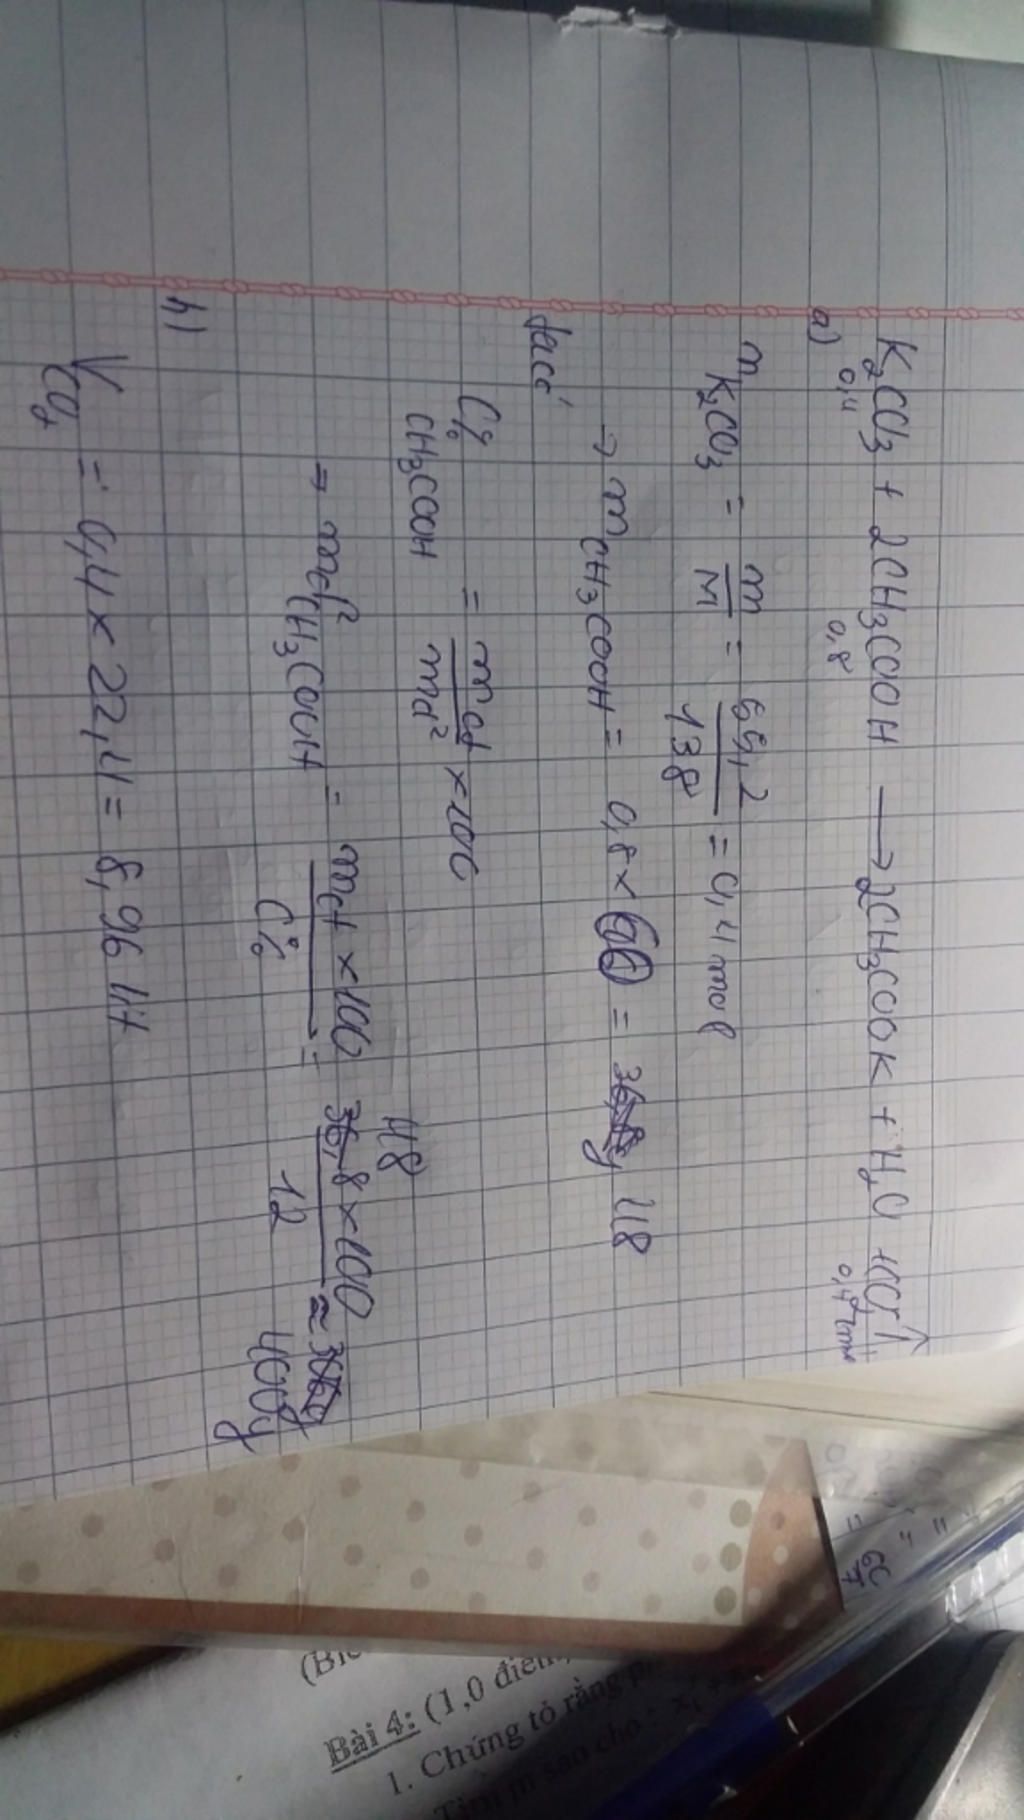 K₂CO₃ + 2CH₃COOH → 2CH₃COOK + H₂O + CO₂↑
0,4 0,8 0,4 mol
a)
n K₂CO₃ = m/M = 55,2/138 = 0,4 mol
→ m CH₃COOH = 0,8 × 60 = 48
Ta có
C% CH₃COOH = mct/md² × 100
48
⇒ md² CH₃COOH = mct × 100/C% = 36,8 × 100/12 ≈ 400g
b)
V CO₂ = 0,4 × 22,4 = 8,96 lít
Bài 4: (1,0 điểm
1. Chứng tỏ rằng
sao cho :